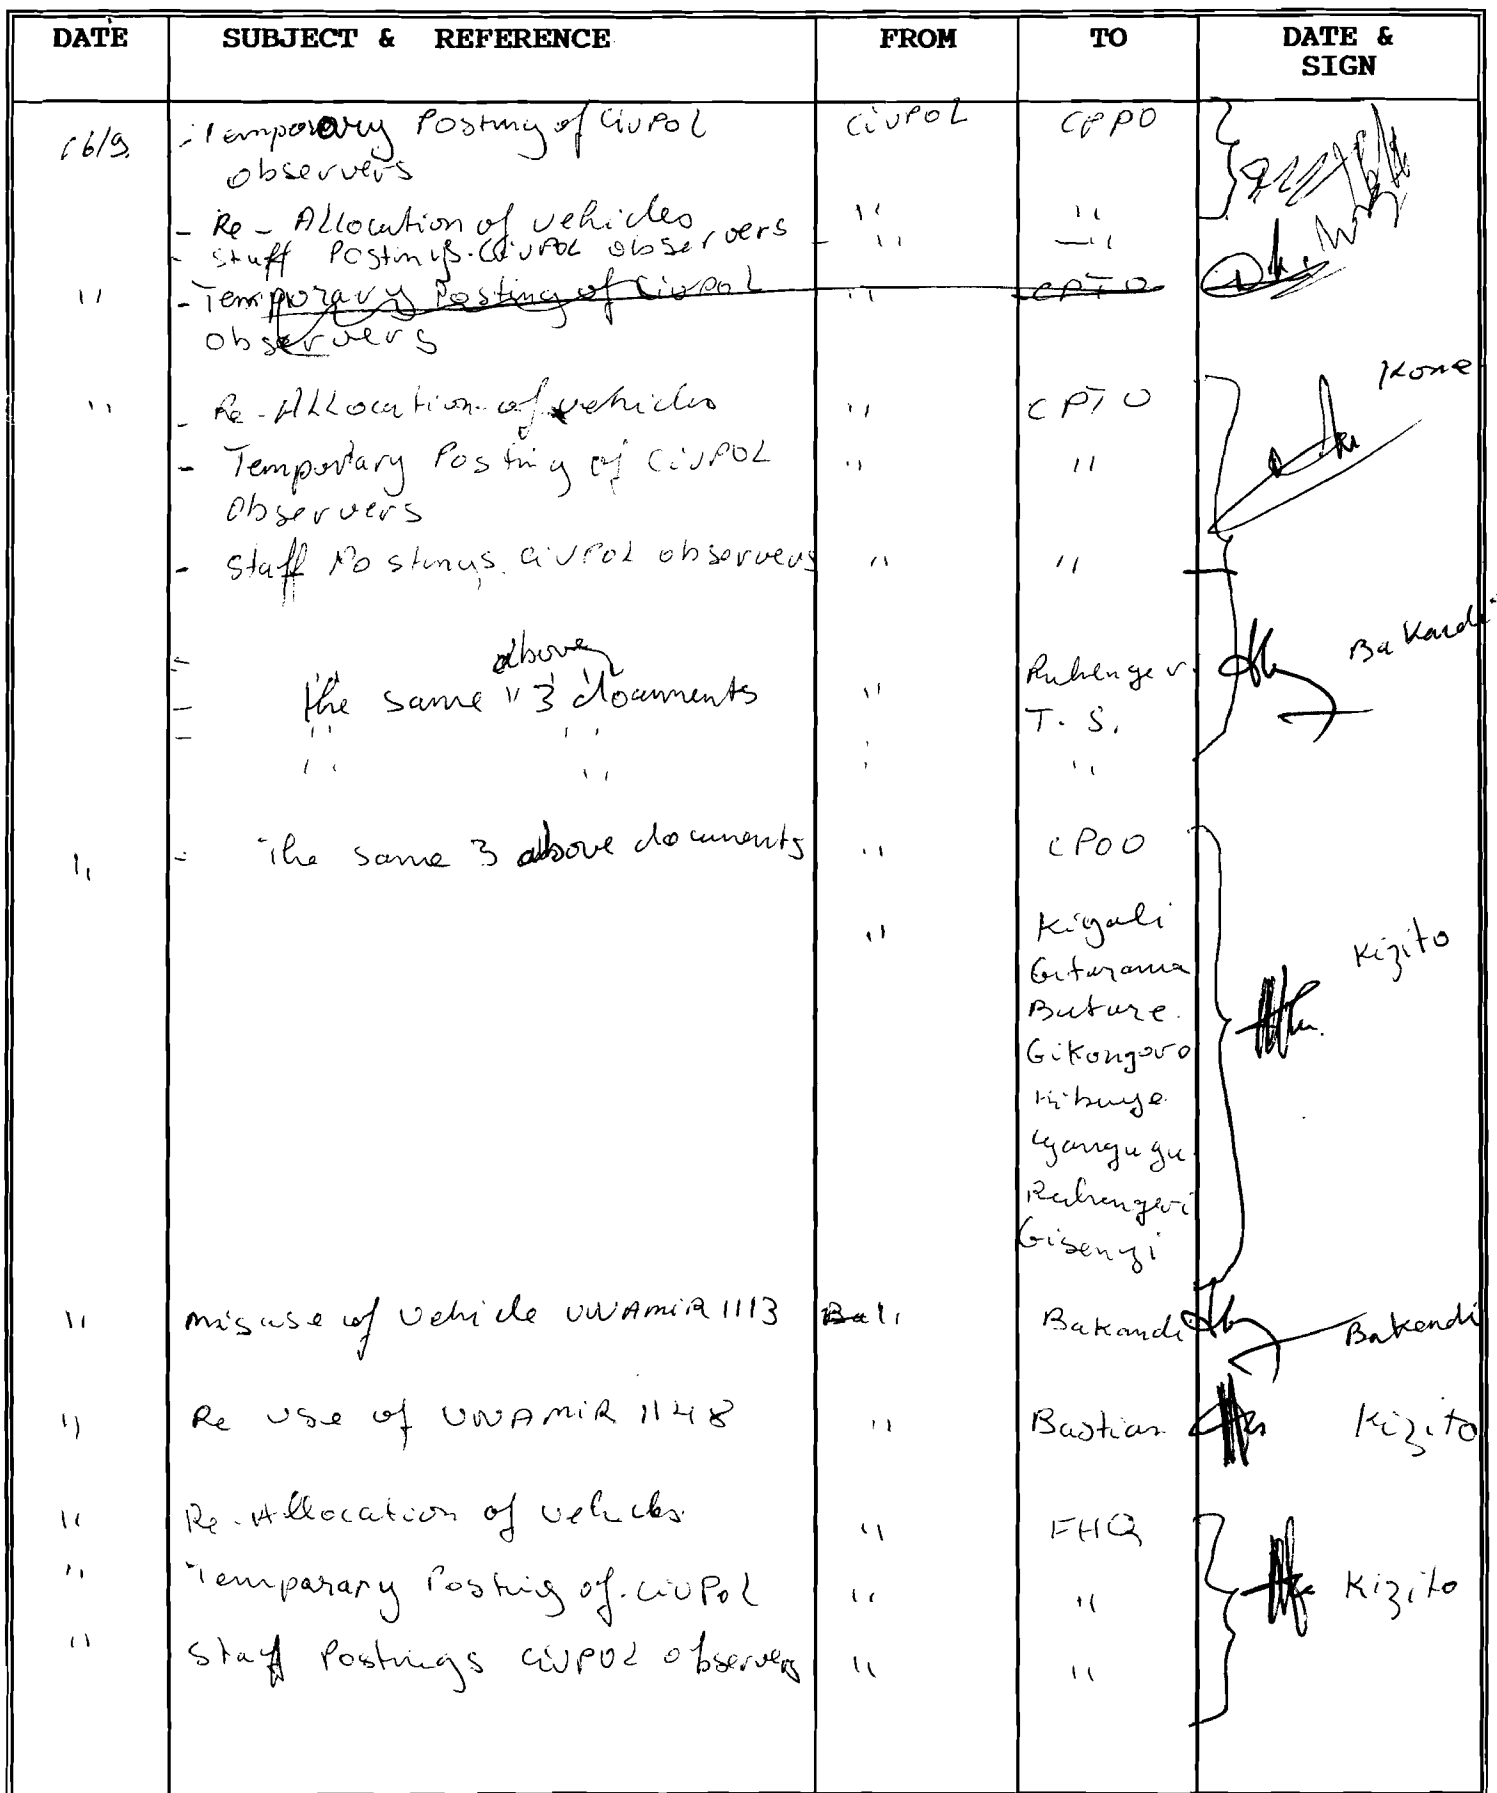 DATE SUBJECT & REFERENCE FROM TO DATE & SIGN
16/9. - Temporary Posting of CIVPOL CIVPOL CPPO
observers
- Re-Allocation of vehicles " "
- Staff Postings. CIVPOL observers - " - "
" - Temporary Posting of Civpol " CPTO
observers
" - Re-Allocation of vehicles " CPTO Kone
- Temporary Posting of CIVPOL " "
Observers
- Staff Postings. CIVPOL observers " "
above
- the same " 3 documents " Ruhenger. Bakandi
- " " T. S.
- " " " "
" - The same 3 above documents " CPOO
" Kigali Kizito
Gitarama
Buture.
Gikongoro
Kibuye
Cyangugu
Ruhengeri
Gisenyi
" misuse of vehicle UNAMIR 1113 Bal " Bakandi Bakendi
" Re use of UNAMIR 1148 " Bastian Kizito
" Re-Allocation of vehicles. " FHQ
" Temparary Posting of. CIVPOL " " Kizito
" Staff Postings CIVPOL observers " "